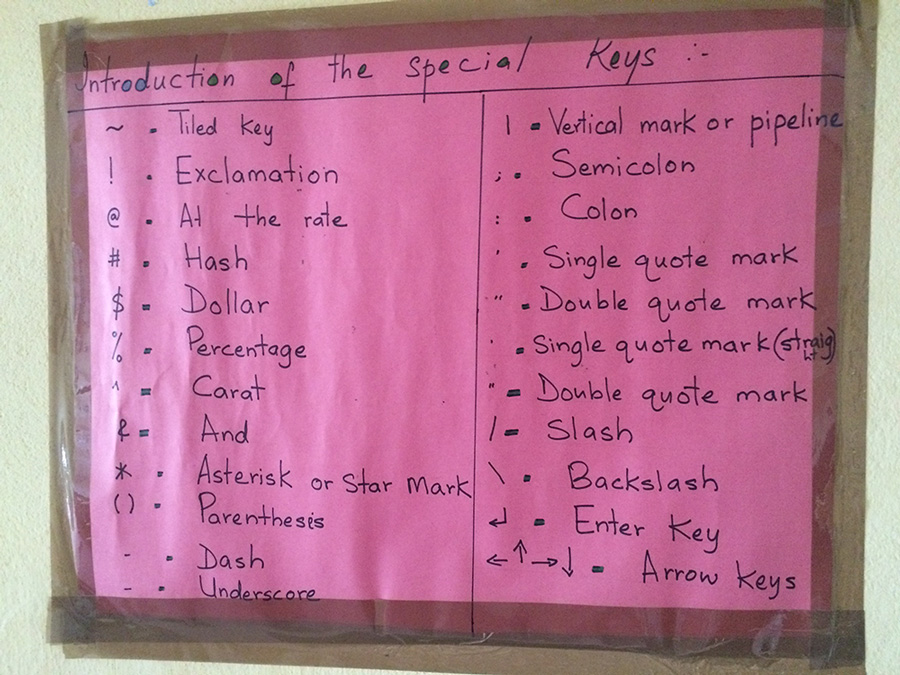 Introduction of the special Keys :-
~ = Tiled key
! = Exclamation
@ = At the rate
# = Hash
$ = Dollar
% = Percentage
^ = Carat
& = And
* = Asterisk or Star Mark
() = Parenthesis
- = Dash
_ = Underscore
| = Vertical mark or pipeline
; = Semicolon
: = Colon
’ = Single quote mark
” = Double quote mark
' = Single quote mark (straight)
" = Double quote mark
/ = Slash
\ = Backslash
↵ = Enter Key
←↑→↓ = Arrow Keys